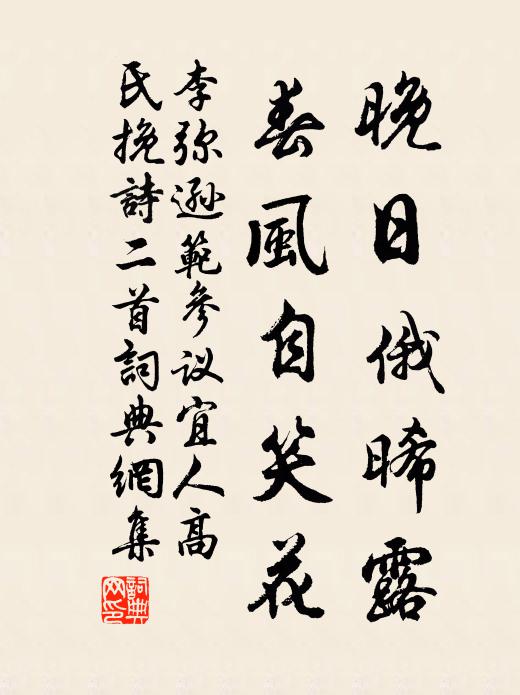 晚日俄晞露
春風自笑花
李弥遜範參议宜人高
民挽詩二首詞典網集
詞典網印